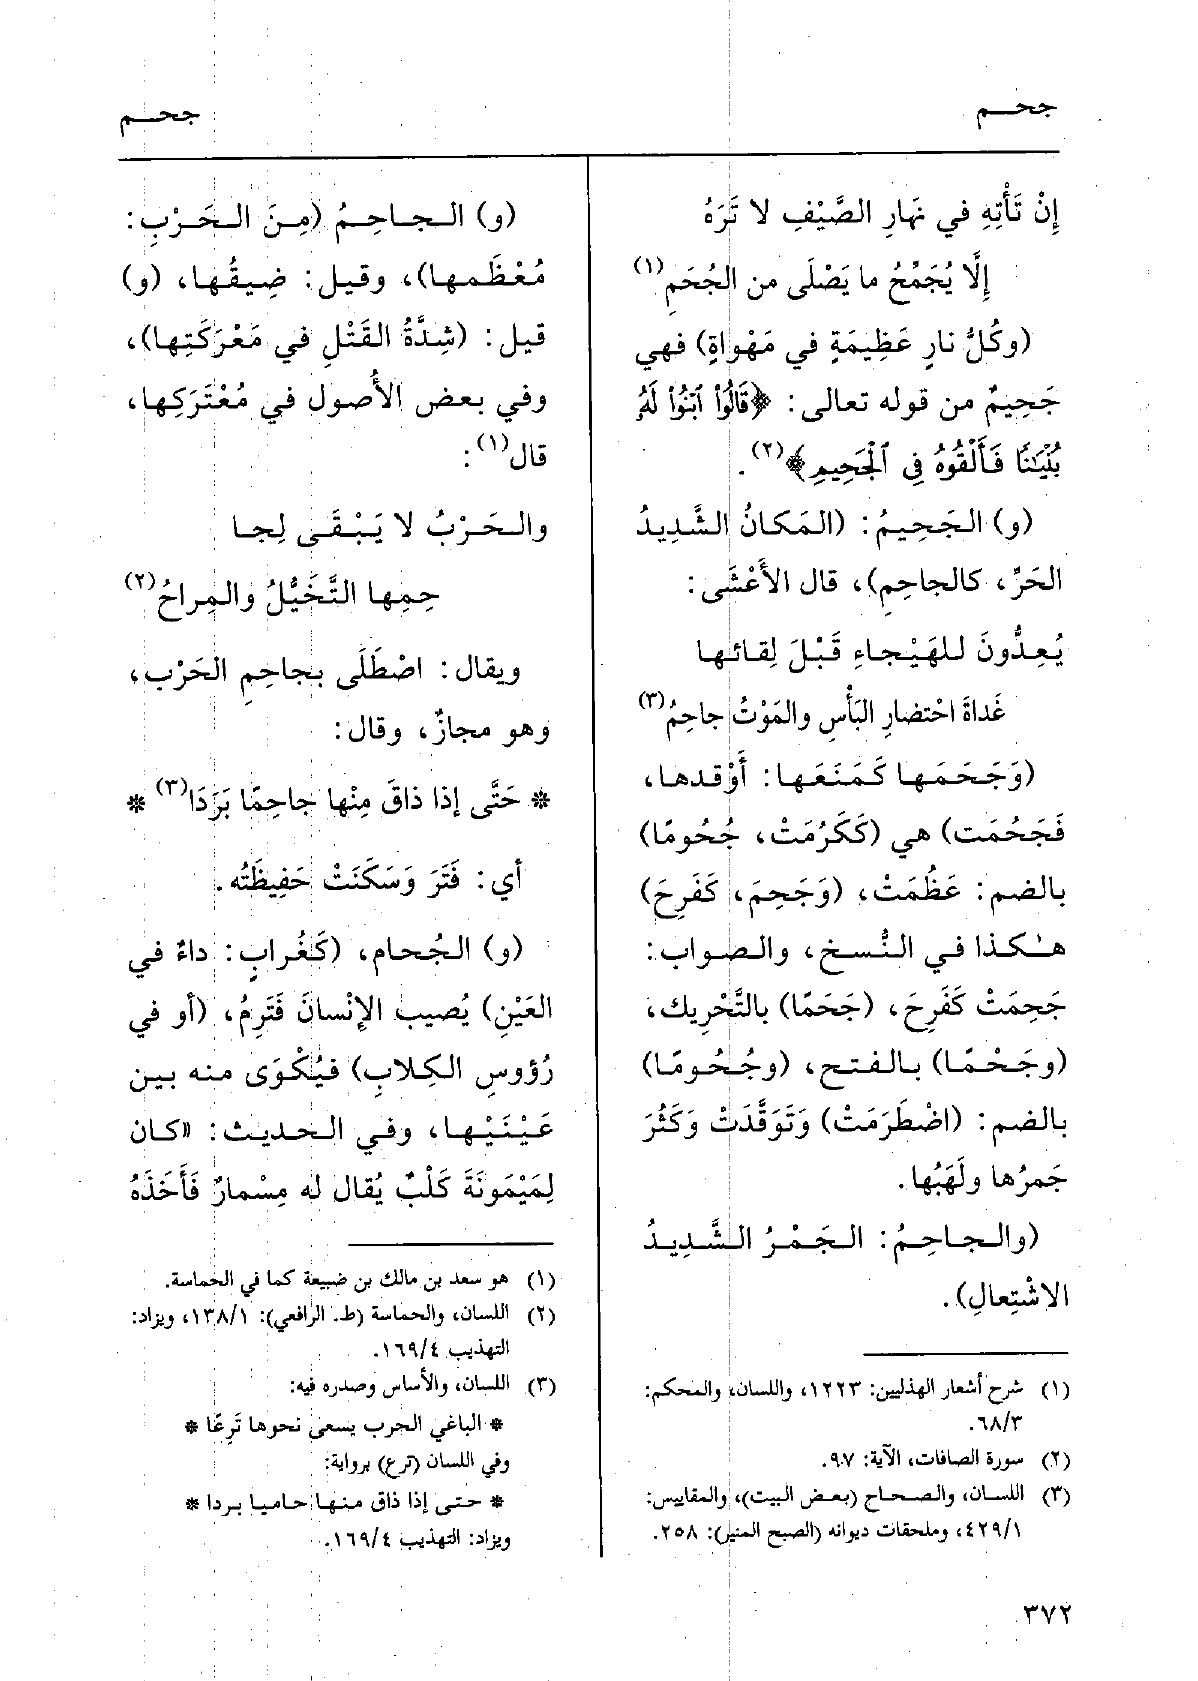 جحـــم
جحـــم
إِنْ تَأْتِهِ في نَهارِ الصَّيْفِ لا تَرَهُ
إِلَّا يُجَمِّحُ ما يَصْلَى من الجُحَمِ(١)
(وكُلُّ نارٍ عَظِيمَةٍ في مَهْواةٍ) فهي
جَحِيمٌ من قوله تعالى: ﴿قَالُواْ ٱبْنُواْ لَهُۥ
بُنْيَـٰنًا فَأَلْقُوهُ فِى ٱلْجَحِيمِ﴾(٢).
(و) الجَحِيمُ: (المَكانُ الشَّدِيدُ
الحَرِّ، كالجاحِمِ)، قال الأَعْشَى:
يُعِدُّونَ للهَيْجاءِ قَبْلَ لِقائها
غَداةَ احْتضارِ البَأْسِ والمَوْتُ جاحِمُ(٣)
(وَجَحَمَها كَمَنَعَها: أَوْقدها،
فَجَحُمَت) هي (كَكَرُمَتْ، جُحُومًا)
بالضم: عَظُمَتْ، (وَجَحِمَ، كَفَرِحَ)
هـٰكذا في النُّسخ، والصواب:
جَحِمَتْ كَفَرِحَ، (جَحَمًا) بالتَّحْرِيك،
(وجَحْمًا) بالفتح، (وجُحُومًا)
بالضم: (اضْطَرَمَتْ) وَتَوَقَّدَتْ وَكَثُرَ
جَمرُها ولَهَبُها.
(والجاحِمُ: الجَمْرُ الشَّدِيدُ
الاشْتِعالِ).
(١) شرح أشعار الهذليين: ١٢٢٣، واللسان، والمحكم:
٦٨/٣.
(٢) سورة الصافات، الآية: ٩٧.
(٣) اللسان، والصحاح (بعض البيت)، والمقاييس:
٤٢٩/١، وملحقات ديوانه (الصبح المنير): ٢٥٨.
(و) الجاحِمُ (مِنَ الحَرْبِ:
مُعْظَمها)، وقيل: ضِيقُها، (و)
قيل: (شِدَّةُ القَتْلِ في مَعْرَكَتِها)،
وفي بعض الأُصول في مُعْتَرَكِها،
قال(١):
والحَرْبُ لا يَبْقَى لِجا
حِمِها التَّخَيُّلُ والمِراحُ(٢)
ويقال: اصْطَلَى بجاحِمِ الحَرْب،
وهو مجازٌ، وقال:
* حَتَّى إذا ذاقَ مِنْها جاحِمًا بَرَدَا(٣) *
أي: فَتَرَ وَسَكَنَتْ حَفِيظَتُه.
(و) الجُحام، (كَغُرابٍ: داءٌ في
العَيْنِ) يُصيب الإنْسانَ فَتَرِمُ، (أو في
رُؤوسِ الكِلابِ) فيُكْوَى منه بين
عَيْنَيْها، وفي الحديث: «كان
لِمَيْمُونَةَ كَلْبٌ يُقال له مِسْمارٌ فَأَخَذَهُ
(١) هو سعد بن مالك بن ضبيعة كما في الحماسة.
(٢) اللسان، والحماسة (ط. الرافعي): ١٣٨/١، ويزاد:
التهذيب ١٦٩/٤.
(٣) اللسان، والأساس وصدره فيه:
* الباغي الحرب يسعى نحوها تَرِعًا *
وفي اللسان (ترع) برواية:
* حتى إذا ذاق منها حاميا بردا *
ويزاد: التهذيب ١٦٩/٤.
٣٧٢